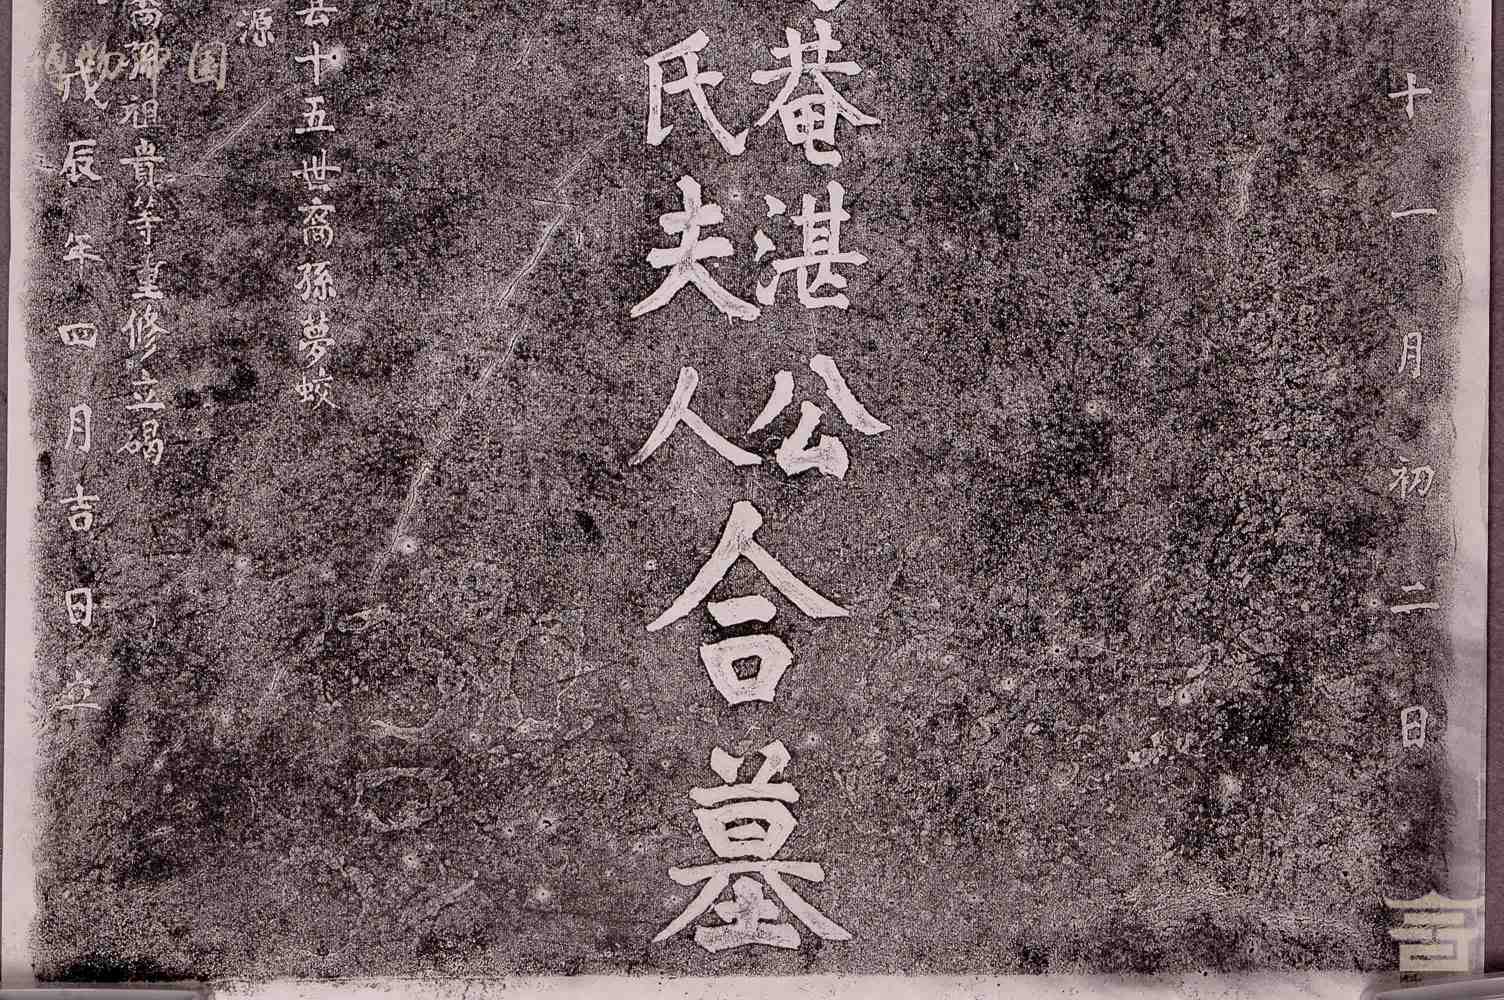 十一月初二日
菴湛公
氏夫人
合墓
十五世裔孫夢蛟
源
裔孫祖貴等重修立碣
戊辰年四月吉日立